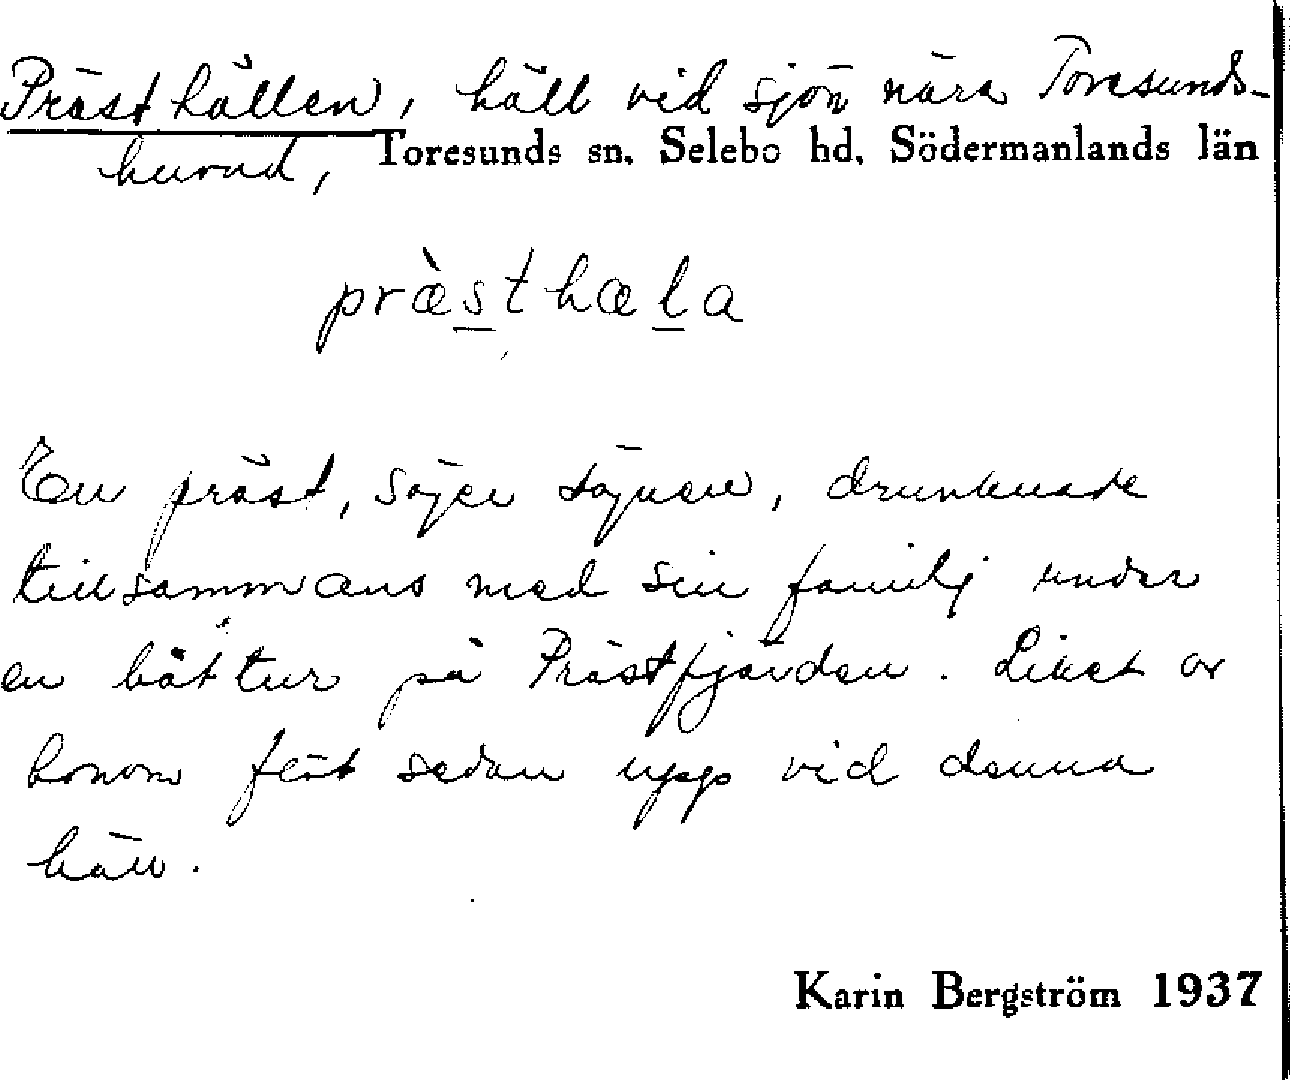 Prästhällen, häll vid sjön nära Toresunds-
huvud, Toresunds sn. Selebo hd. Södermanlands län
præ̀s̲thæl̲a
En präst, säjer sägnen, drunknade
tillsammans med sin familj under
en båttur på Prästfjärden. Liket av
honom flöt sedan upp vid denna
häll.
Karin Bergström 1937